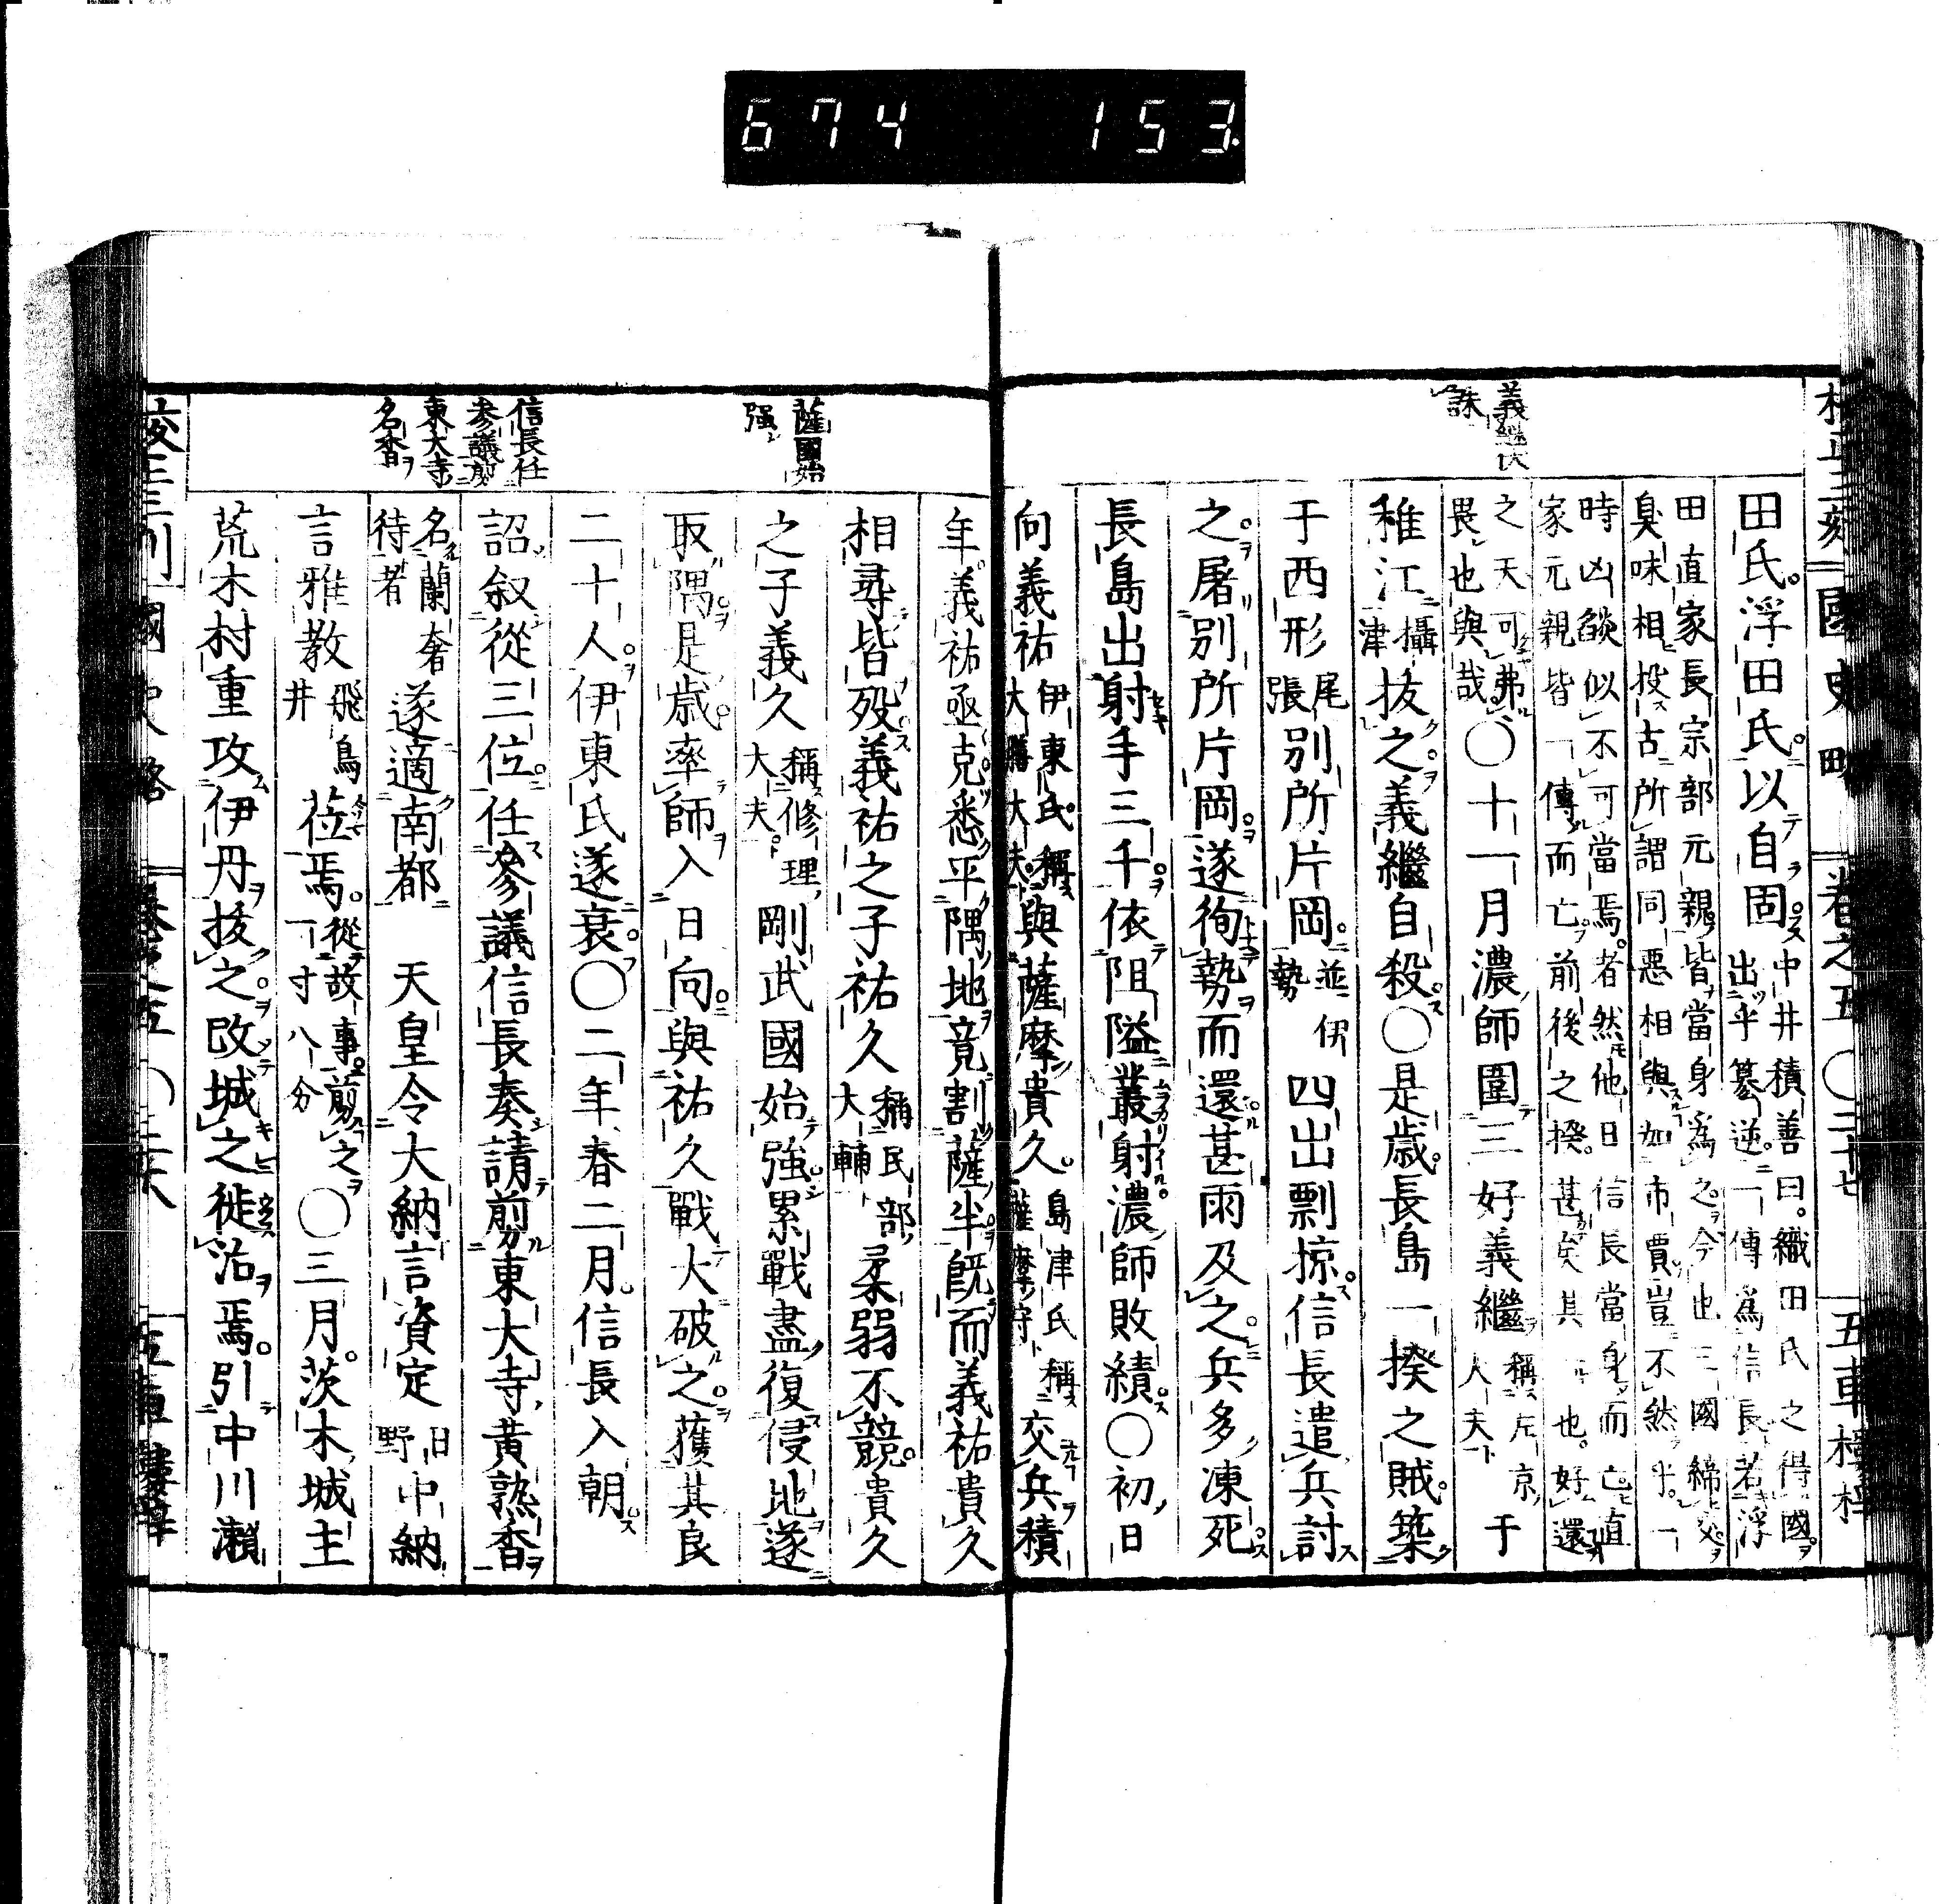 674 153
校正三刻 國史略 卷之五 〇二十七 五車樓梓
義継伏
誅
田氏浮田氏以自固中井積善曰織田氏之得國
出乎簒逆一傳爲信長若浮
田直家長宗部元親皆當身爲之今也三國締交
臭味相投古所謂同惡相與如市賈豈不然乎一
時凶燄似不可當焉者然他日信長當身而亡直
家元親皆一傳而亡前後之揆甚矣其也好還
之天可弗
畏也與哉〇十一月濃師圍三好義繼稱左京
人夫于
稚江攝
津拔之義繼自殺〇是歳長島一揆之賊築
于西形尾
張別所片岡並伊
勢四出剽掠信長遣兵討
之屠別所片岡遂徇勢而還甚雨及之兵多凍死
長島出射手三千依阻隘叢射濃師敗績〇初日
向義祐伊東氏稱
大膳大夫與薩摩貴久島津氏稱
薩摩守交兵積
年義祐亟克悉平隅地竟割薩半既而義祐貴久
相尋皆歿義祐之子祐久稱民部
大輔柔弱不競貴久
之子義久稱修理
大夫剛武國始強累戰盡復侵地遂
取隅是歳率師入日向與祐久戰大破之獲其良
二十人伊東氏遂衰〇二年春二月信長入朝
詔叙從三位任參議信長奏請剪東大寺黃熟香
名蘭奢
待者遂適南都 天皇令大納言資定日
野中納
言雅教飛鳥
井莅焉從故事剪之
一寸八分〇三月茨木城主
荒木村重攻伊丹拔之改城之徙治焉引中川瀨
薩國始
强
信長任
参議剪
東大寺
名香